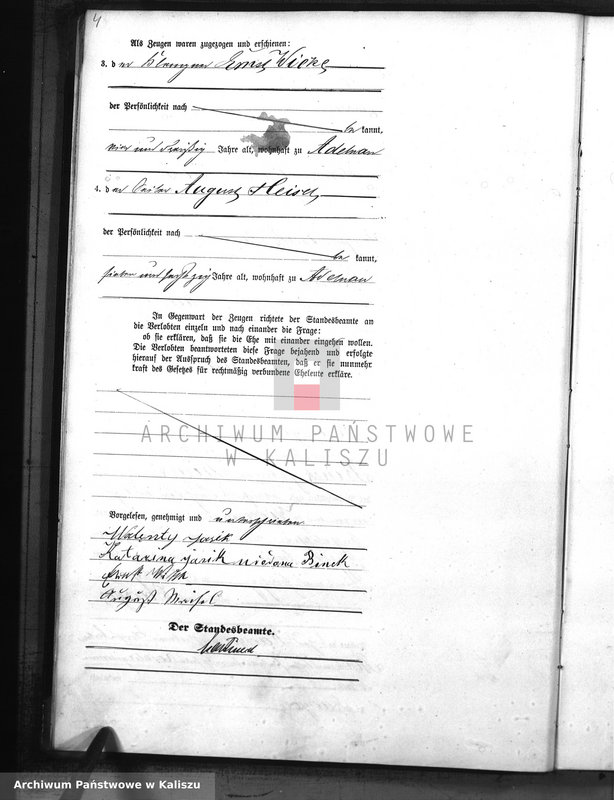 4
Als Zeugen waren zugezogen und erschienen:
3. der Ernst
der Persönlichkeit nach
be kannt,
vier und dreißig Jahre alt, wohnhaft zu Adelnau
4. der August
der Persönlichkeit nach
be kannt,
sieben und Jahre alt, wohnhaft zu Adelnau
In Gegenwart der Zeugen richtete der Standesbeamte an
die Verlobten einzeln und nach einander die Frage:
ob sie erklären, daß sie die Ehe mit einander eingehen wollen.
Die Verlobten beantworteten diese Frage bejahend und erfolgte
hierauf der Ausspruch des Standesbeamten, daß er sie nunmehr
kraft des Gesetzes für rechtmäßig verbundene Eheleute erkläre.
ARCHIWUM PAŃSTWOWE
W KALISZU
Vorgelesen, genehmigt und unterschrieben
Walenty Jasik
Katarzina Jasik Binek
Ernst
August
Der Standesbeamte.
Archiwum Państwowe w Kaliszu